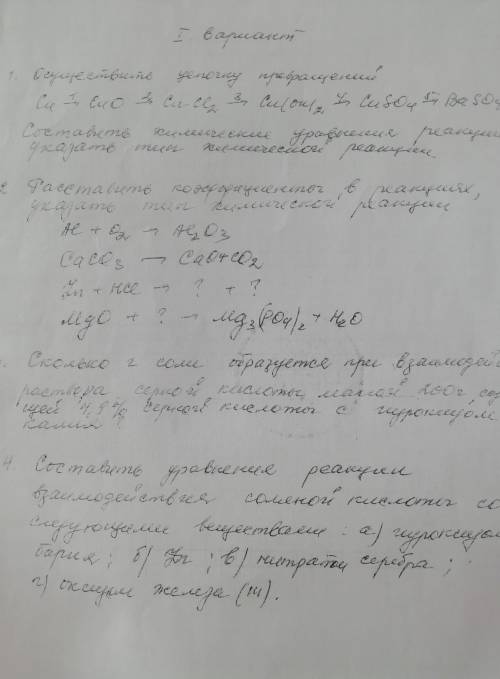 I вариант
1. Осуществить цепочку превращений
Cu 1→ CuO 2→ CuCl2 3→ Cu(OH)2 4→ CuSO4 5→ BaSO4
Составить химические уравнения реакции
указать тип химической реакции
2 Расставить коэффициенты в реакциях,
указать тип химической реакции
Al + O2 → Al2O3
CaCO3 → CaO+CO2
Zn + HCl → ? + ?
MgO + ? → Mg3(PO4)2 + H2O
. Сколько г соли образуется при взаимодей
раствора серной кислоты массой 200г сод
щей 4,9% серной кислоты с гидроксидом
калия?
4. Составить уравнения реакции
взаимодействия соляной кислоты со
следующими веществами: а) гидроксидом
бария; б) Zn; в) нитратом серебра;
г) оксидом железа (III).